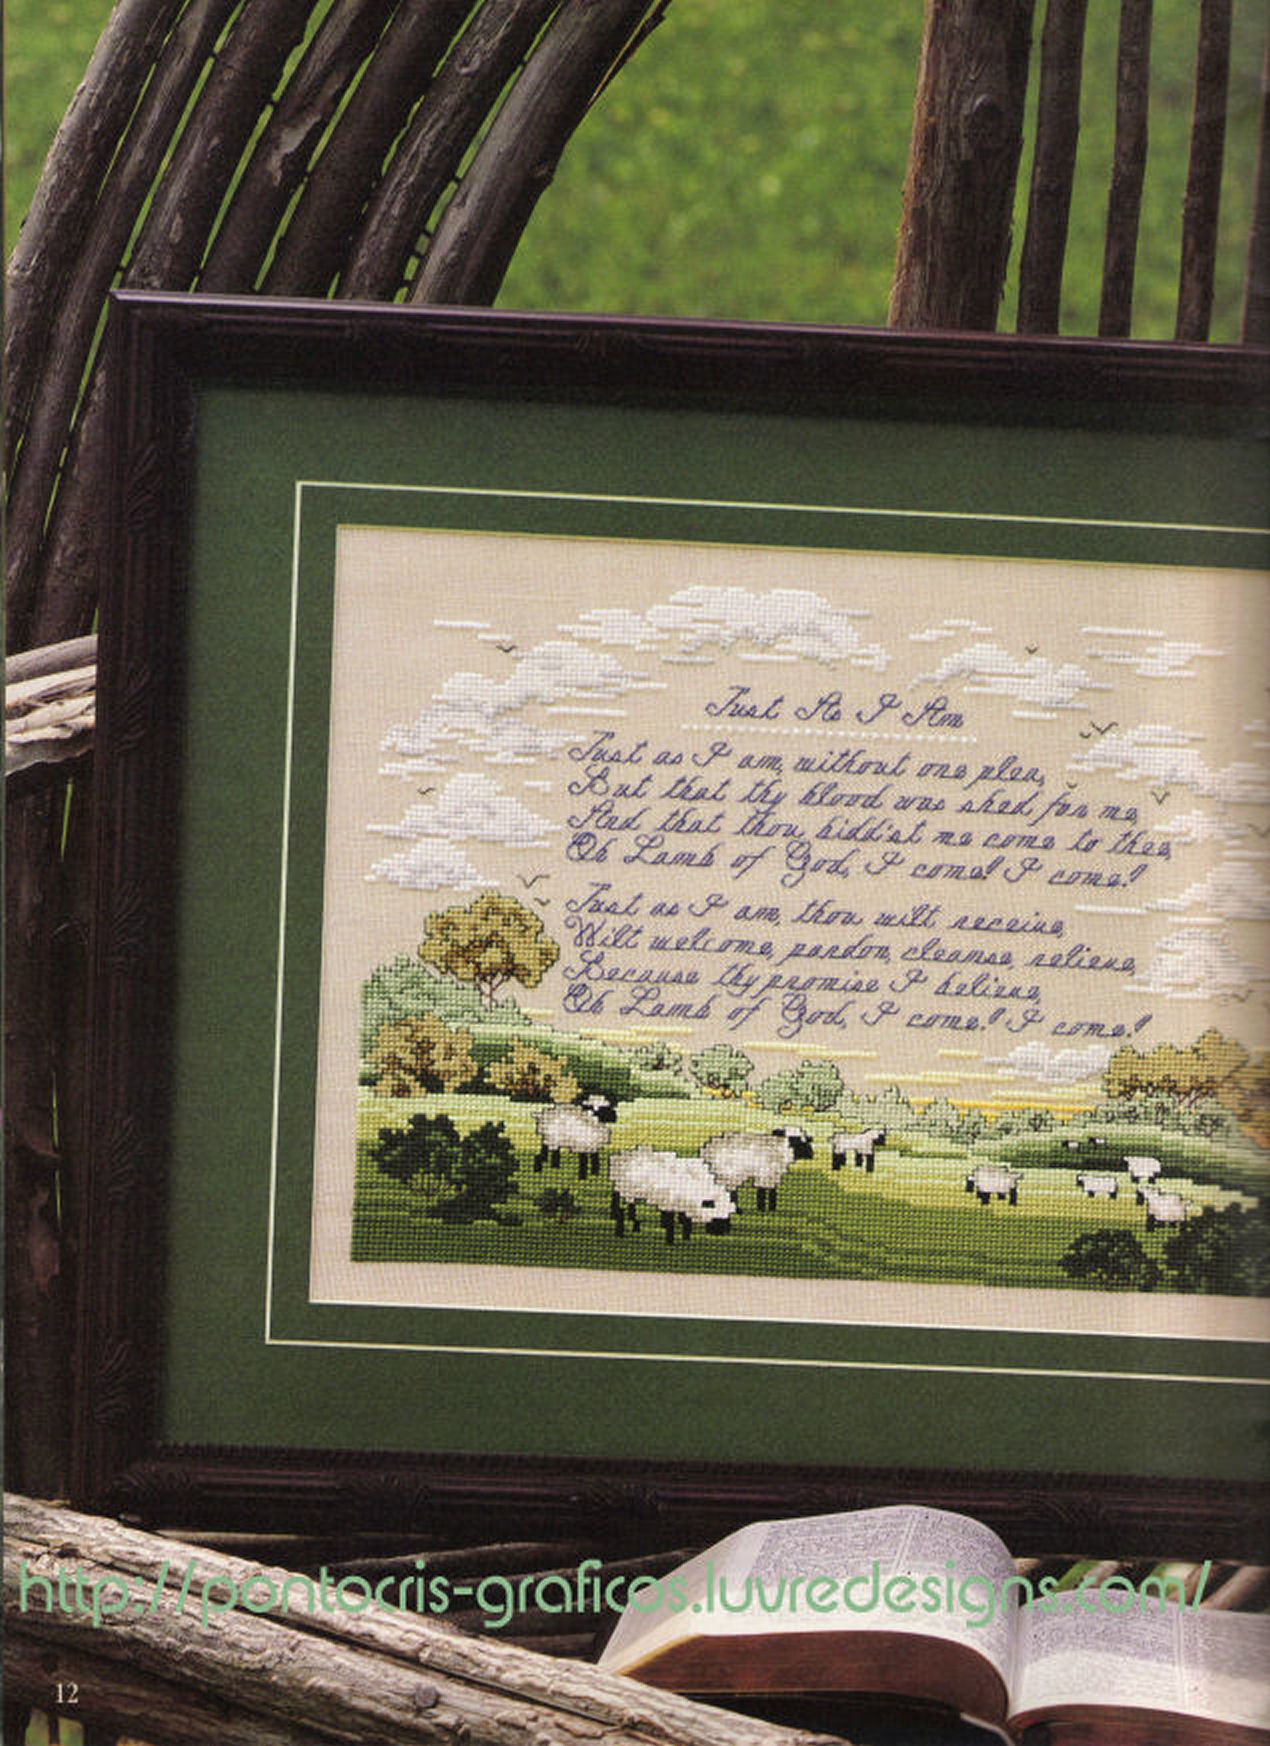 Just As I Am
Just as I am, without one plea,
But that thy blood was shed for me,
And that thou bidd'st me come to thee,
Oh Lamb of God, I come! I come!
Just as I am, thou wilt receive,
Wilt welcome, pardon, cleanse, relieve,
Because thy promise I believe,
Oh Lamb of God, I come! I come!
http://pontocris-graficos.luvredesigns.com/
12